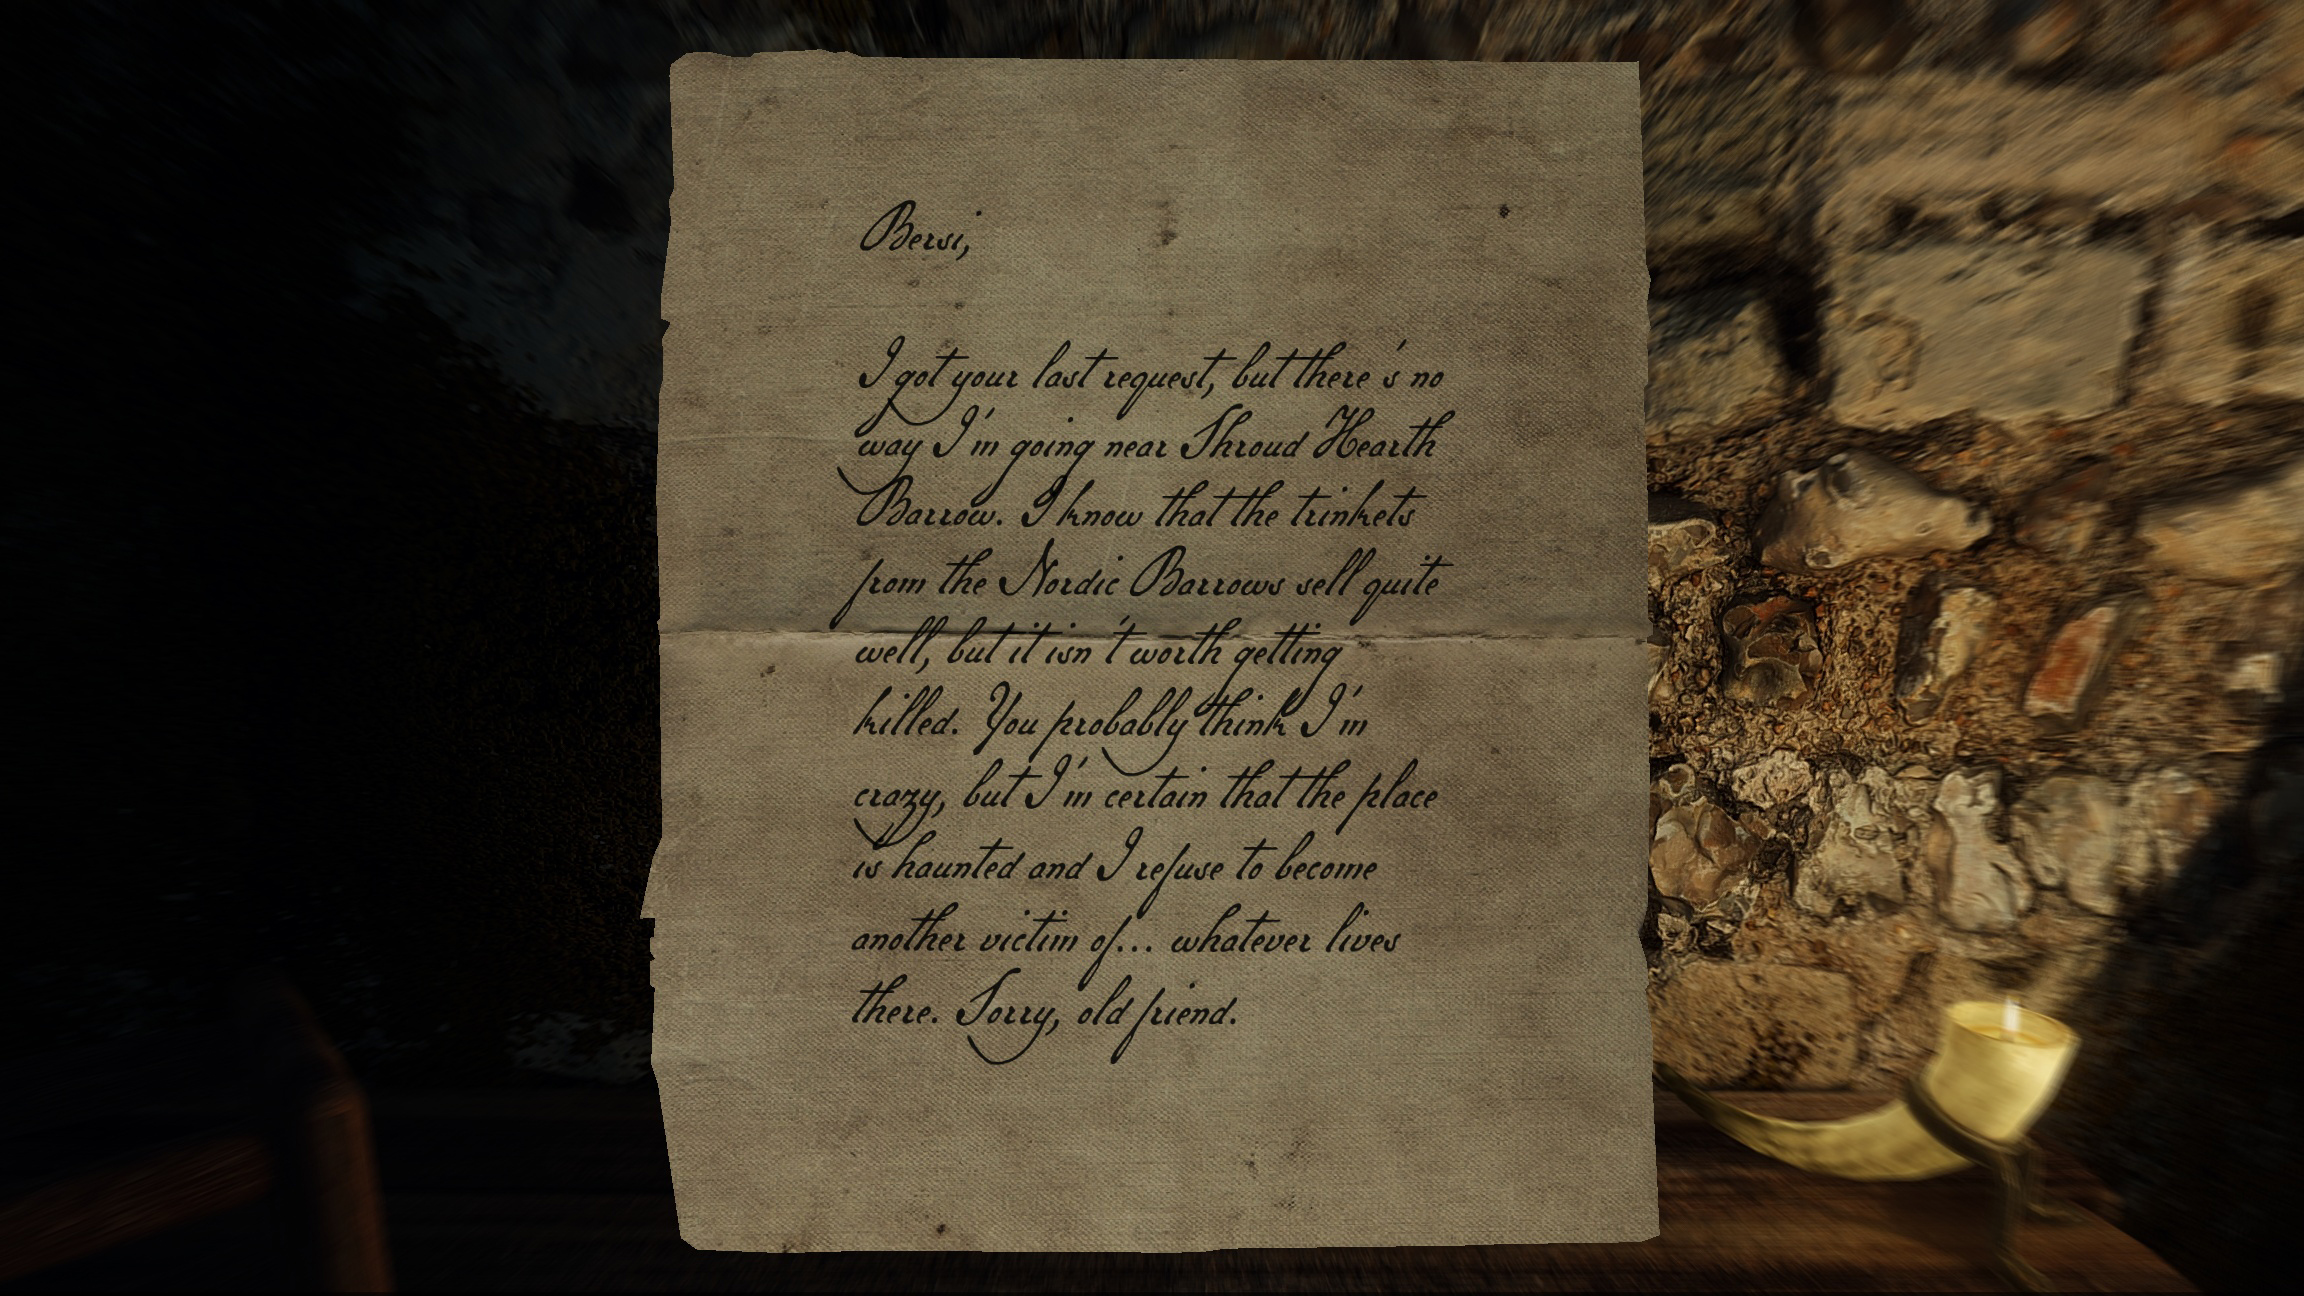 Bersi,
I got your last request, but there's no
way I'm going near Shroud Hearth
Barrow. I know that the trinkets
from the Nordic Barrows sell quite
well, but it isn't worth getting
killed. You probably think I'm
crazy, but I'm certain that the place
is haunted and I refuse to become
another victim of... whatever lives
there. Sorry, old friend.